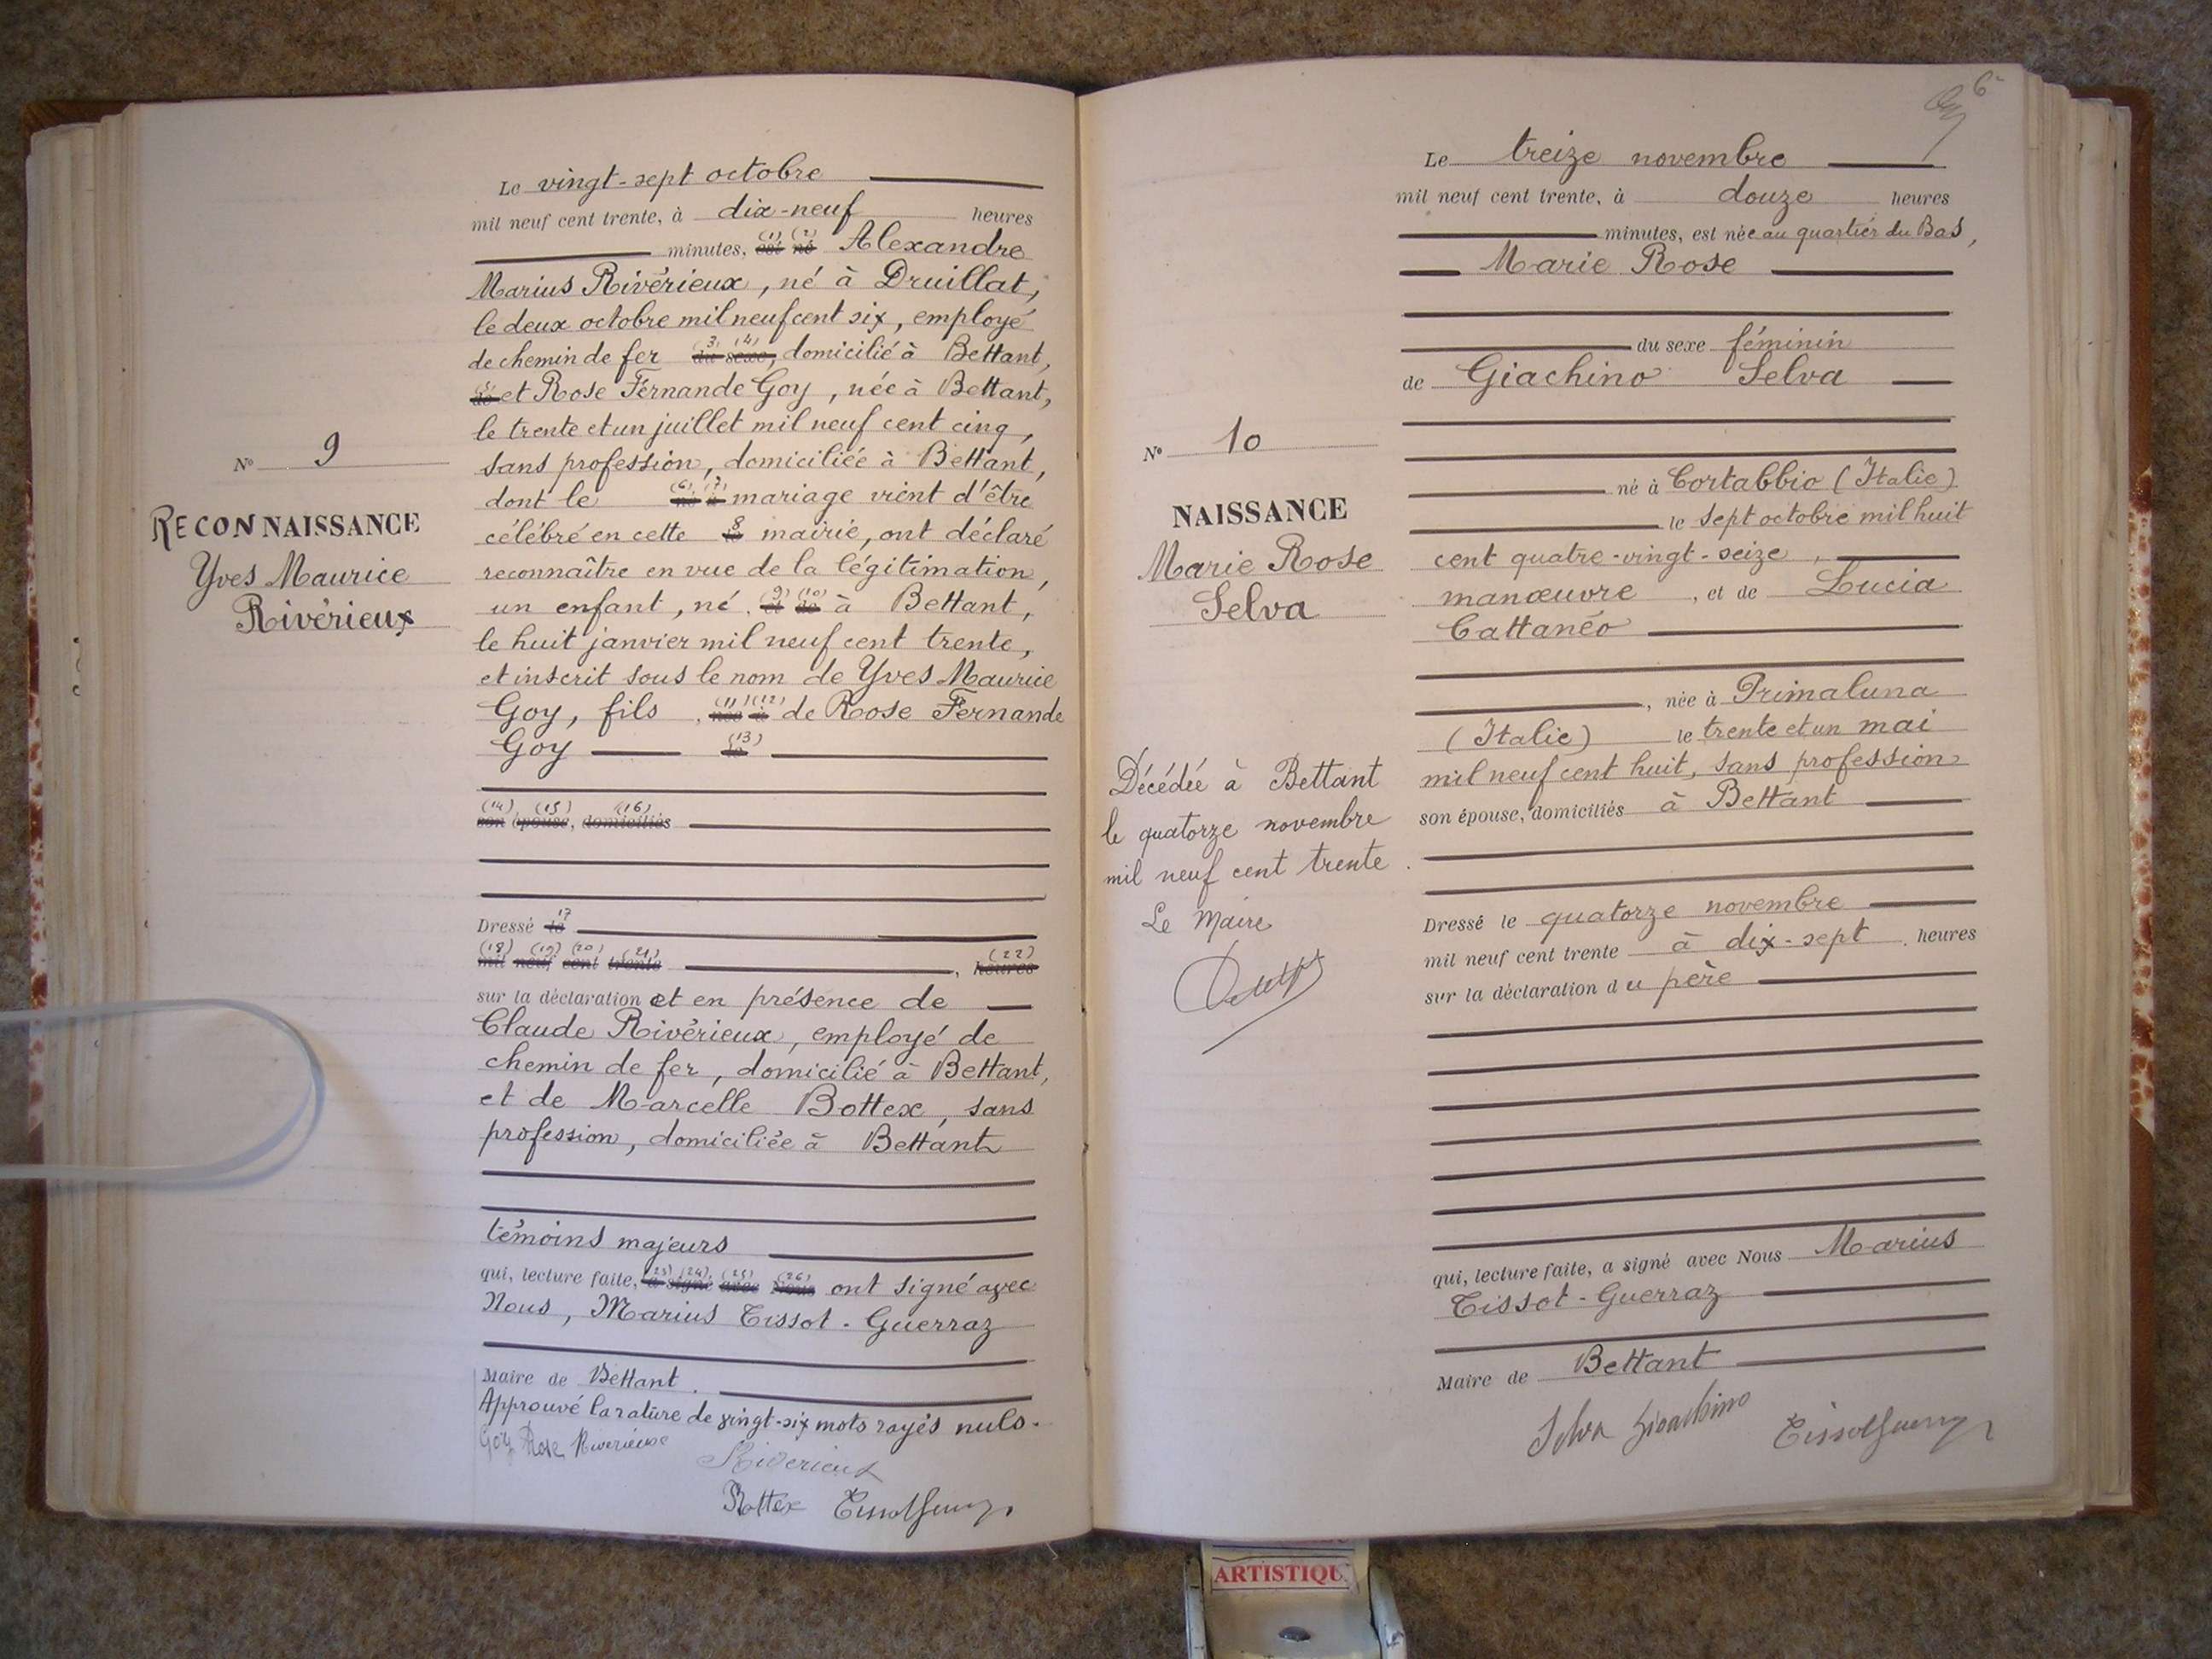 Le vingt-sept octobre
mil neuf cent trente, à dix-neuf heures
minutes, (1) est (2) né Alexandre
Marius Rivérieux, né à Druillat,
le deux octobre mil neuf cent six, employé
de chemin de fer (3) du (4) sexe, domicilié à Bettant,
(5) de et Rose Fernande Goy, née à Bettant,
le trente et un juillet mil neuf cent cinq,
sans profession, domiciliée à Bettant,
dont le (6) né (7) à mariage vient d'être
célébré en cette 8 le mairie, ont déclaré
reconnaître en vue de la légitimation,
un enfant, né (9) et (10) de à Bettant,
le huit janvier mil neuf cent trente,
et inscrit sous le nom de Yves Maurice
Goy, fils (11) née (12) à de Rose Fernande
Goy (13) le
(14) son (15) épouse, (16) domiciliés
Dressé 17 le
(18) mil (19) neuf (20) cent (21) trente, (22) heures
sur la déclaration et en présence de
Claude Rivérieux, employé de
chemin de fer, domicilié à Bettant,
et de Marcelle Bottex, sans
profession, domiciliée à Bettant
témoins majeurs
qui, lecture faite, (23) a (24) signé (25) avec (26) Nous ont signé avec
Nous, Marius Tissot-Guerraz
Maire de Bettant.
Approuvé la rature de vingt-six mots rayés nuls.
Goy Rose Riverieux
Riverieux
Bottex
N° 9
RECONNAISSANCE
Yves Maurice
Rivérieux
6
Le treize novembre
mil neuf cent trente, à douze heures
minutes, est née au quartier du Bas,
Marie Rose
du sexe féminin
de Giachino Selva
né à Cortabbio (Italie)
le sept octobre mil huit
cent quatre-vingt-seize,
manœuvre, et de Lucia
Cattanéo
, née à Primaluna
(Italie) le trente et un mai
mil neuf cent huit, sans profession
son épouse, domiciliés à Bettant
Dressé le quatorze novembre
mil neuf cent trente à dix-sept heures
sur la déclaration du père
qui, lecture faite, a signé avec Nous Marius
Tissot-Guerraz
Maire de Bettant
Selva Giachino
N° 10
NAISSANCE
Marie Rose
Selva
Décédée à Bettant
le quatorze novembre
mil neuf cent trente.
Le Maire
ARTISTIQU